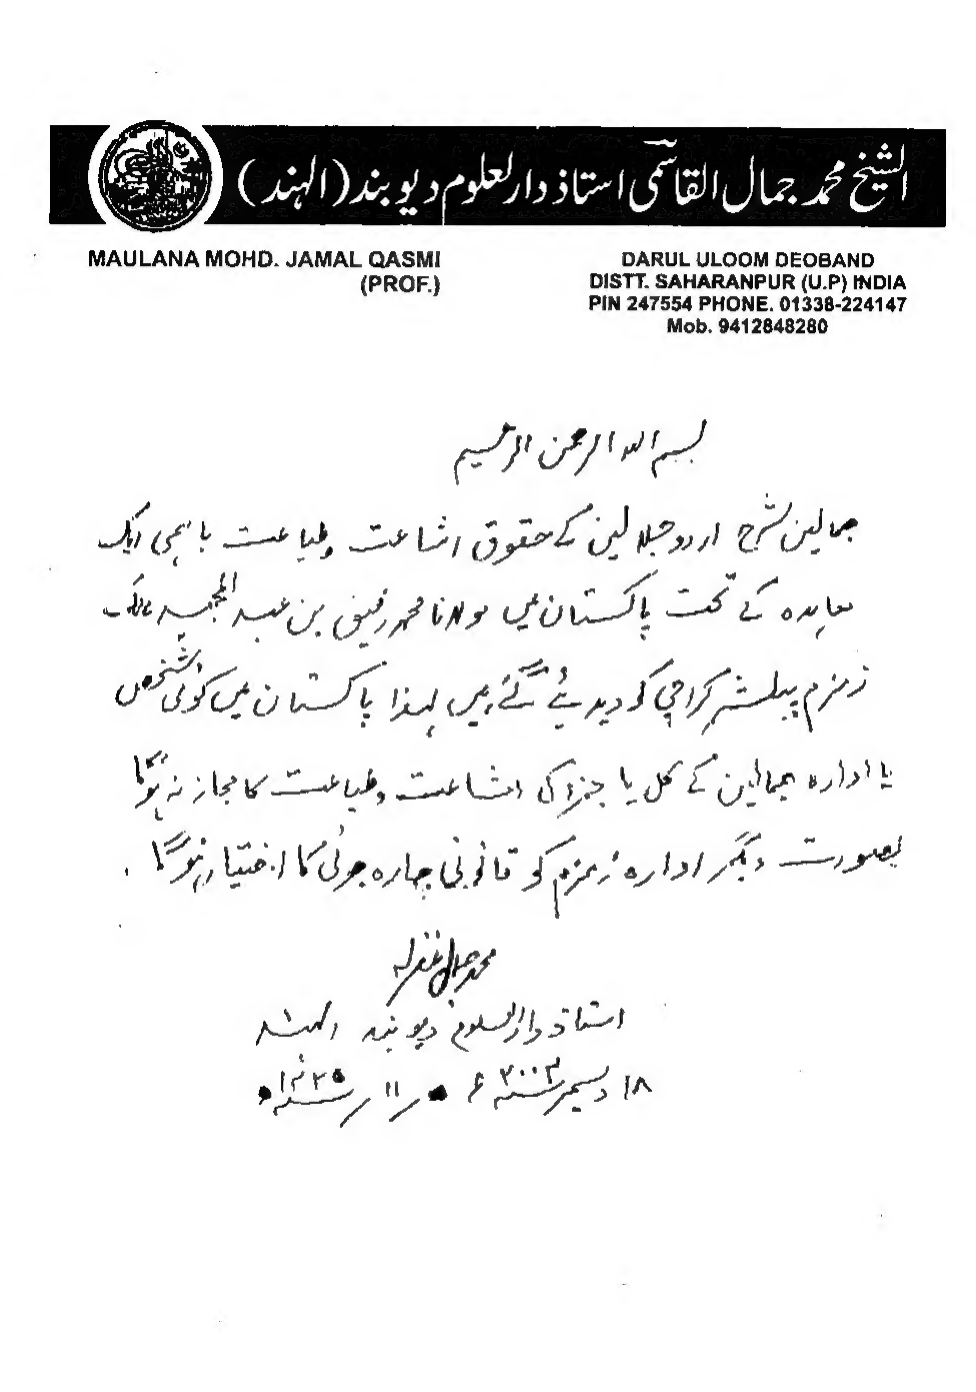 الشیخ محمد جمال القاسمی استاذ دارالعلوم دیوبند (الہند)
MAULANA MOHD. JAMAL QASMI
(PROF.)
DARUL ULOOM DEOBAND
DISTT. SAHARANPUR (U.P) INDIA
PIN 247554 PHONE. 01338-224147
Mob. 9412848280
بسم اللہ الرحمن الرحیم
جمالین شرح اردو جلالین کے حقوق اشاعت وطباعت باہمی ایک
معاہدہ کے تحت پاکستان میں مولانا محمد رفیق بن عبد المجید مالک
زمزم پبلشر کراچی کو دیدیئے گئے ہیں لہذا پاکستان میں کوئی شخص
یا ادارہ جمالین کے کل یا جزء کی اشاعت وطباعت کا مجاز نہ ہوگا
بصورت دیگر ادارہ زمزم کو قانونی چارہ جوئی کا اختیار ہوگا.
محمد جمال غفرلہ
استاذ دارالعلوم دیوبند الہند
۱۸ دسمبر سنہ ۲۰۰۳ء